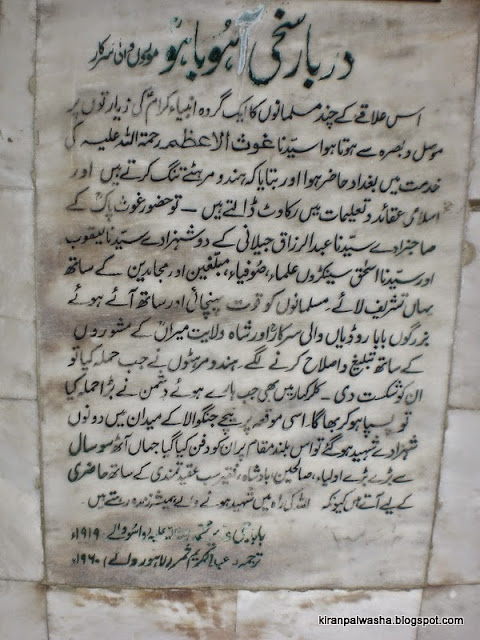 دربار سخی آہو باہو موروں والی سرکار
اس علاقے کے چند مسلمانوں کا ایک گروہ انبیاء کرامؑ کی زیارتوں پر
موصل و بصرہ سے ہوتا ہوا سیّدنا غوث الاعظم رحمۃ اللہ علیہ کی
خدمت میں بغداد حاضر ہوا اور بتایا کہ ہندو مرہٹے تنگ کرتے ہیں اور
اسلامی عقائد و تعلیمات میں رکاوٹ ڈالتے ہیں – تو حضور غوث پاکؒ کے
صاحبزادے سیّدنا عبدالرزاق جیلانی کے دو شہزادے سیّدنا یعقوب
اور سیّدنا اسحٰق سینکڑوں علماء، صوفیاء، مبلّغین اور مجاہدین کے ساتھ
یہاں تشریف لائے۔ مسلمانوں کو قوت پہنچائی اور ساتھ آئے ہوئے
بزرگوں بابا روڈیاں والی سرکارؒ اور شاہ ولایت میراںؒ کے مشوروں
کے ساتھ تبلیغ و اصلاح کرنے لگے۔ ہندو مرہٹوں نے جب حملہ کیا تو
ان کو شکست دی – کلرکہار میں بھی جب ہارے ہوئے دشمن نے بڑا حملہ کیا
تو پسپا ہو کر بھاگا۔ اسی موقعہ پر نیچے جنگ والا کے میدان میں دونوں
شہزادے شہید ہو گئے تو اس بلند مقام پر ان کو دفن کیا گیا جہاں آٹھ سو سال
سے بڑے بڑے اولیاء، صالحین، بادشاہ، فقیر سب عقیدتمندی کے ساتھ حاضری
کے لیے آتے ہیں کیونکہ اللہ کی راہ میں شہید ہونے والے ہمیشہ زندہ رہتے ہیں۔
علیہ ۱۹۱۹ء
ترجمہ: عبدالکریم لاہور والے) ۱۹۶۰ء
kiranpalwasha.blogspot.com